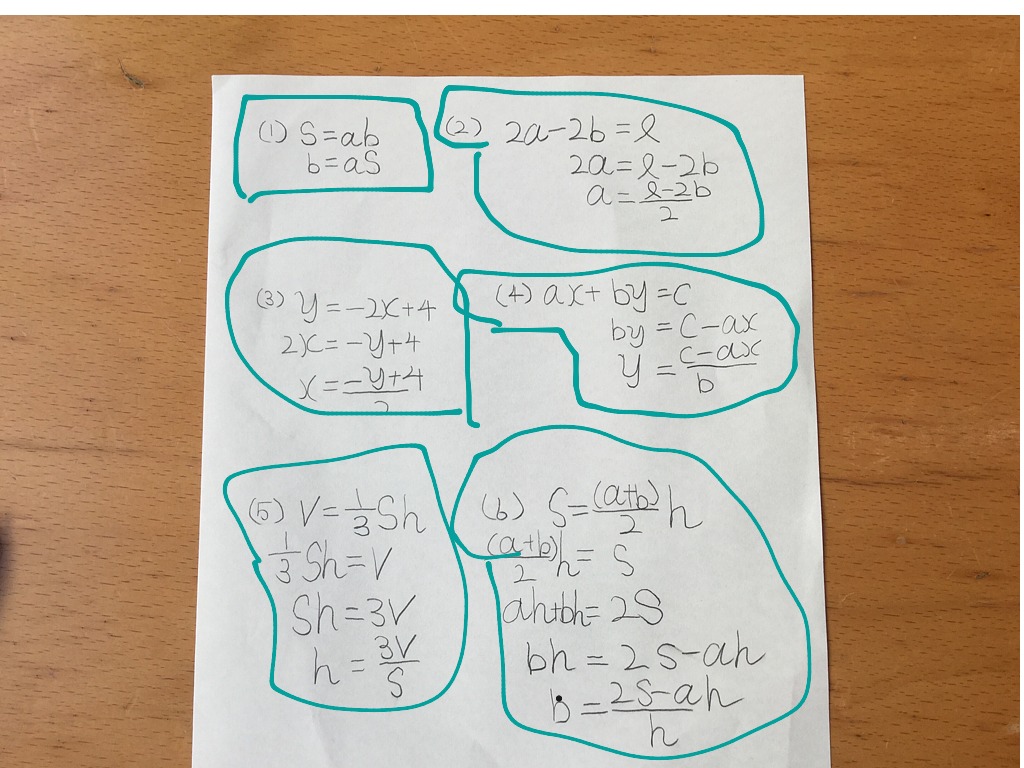 (1) S=ab
b=aS
(2) 2a-2b=l
2a=l-2b
a=\frac{l-2b}{2}
(3) y=-2x+4
2x=-y+4
x=\frac{-y+4}{2}
(4) ax+by=c
by=c-ax
y=\frac{c-ax}{b}
(5) V=\frac{1}{3}Sh
\frac{1}{3}Sh=V
Sh=3V
h=\frac{3V}{S}
(6) S=\frac{(a+b)}{2}h
\frac{(a+b)}{2}h=S
ah+bh=2S
bh=2S-ah
b=\frac{2S-ah}{h}